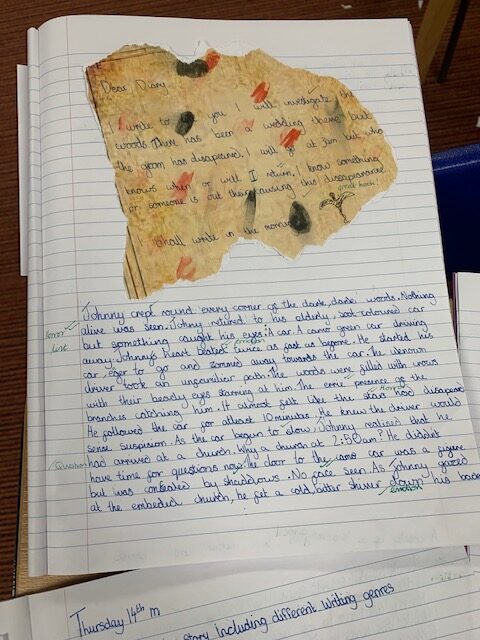 Dear Diary,
I write to you I will investigate the
woods. There has been a wedding there but
the groom has disapeared. I will go at 2am but who
knows when or will I return. I know something
or someone is out there causing this dissaparance
I shall write in the morning
Johnny crept round every corner of the dark, dark woods. Nothing
alive was seen. Johny retured to his elderly, soot-coloured car
but something caught his eyes: A car. A camo green car driving
away. Johnny's heart twice as fast as before. He started his
car, eger to go and zommed away towards the car. The
driver took an unfamiliar path. The woods were filled with crows
with their beady eyes starring at him. The eerie presence of the
branches catching him. It almost felt like the stars had disapeared
He followed the car for atleast 10 minutes. He knew the driver would
sense suspision. As the car began to slow, Johnny realised that he
had arrived at a church. Why a church at 2:50am? He didn't
have time for questions now. The door to the camo car was a figure
but was by shaddows. No face seen. As Johnny gazed
at the church, he felt a cold, bitter shiver down his back
Horror
link
emotion
Horror
Question
emotion
Thursday 14th m
story including different writing genres